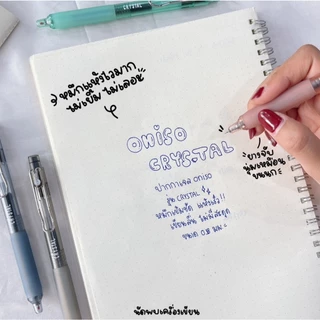 CRYSTAL
หมึกแห้งไวมาก
ไม่เยิ้ม ไม่เลอะ
ONISO
CRYSTAL
ยางจับ
นุ่มเหมือน
ขนนก
ปากกาเจล ONISO
รุ่น CRYSTAL
หมึกเข้มชัด แห้งเร็ว!!
เขียนลื่น ไม่มีสะดุด
ขนาด 0.5 มม.
นัดพบเครื่องเขียน